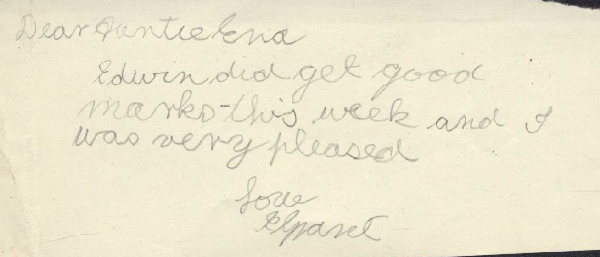 Dear Auntie Ena
Edwin did get good
marks this week and I
was very pleased
love